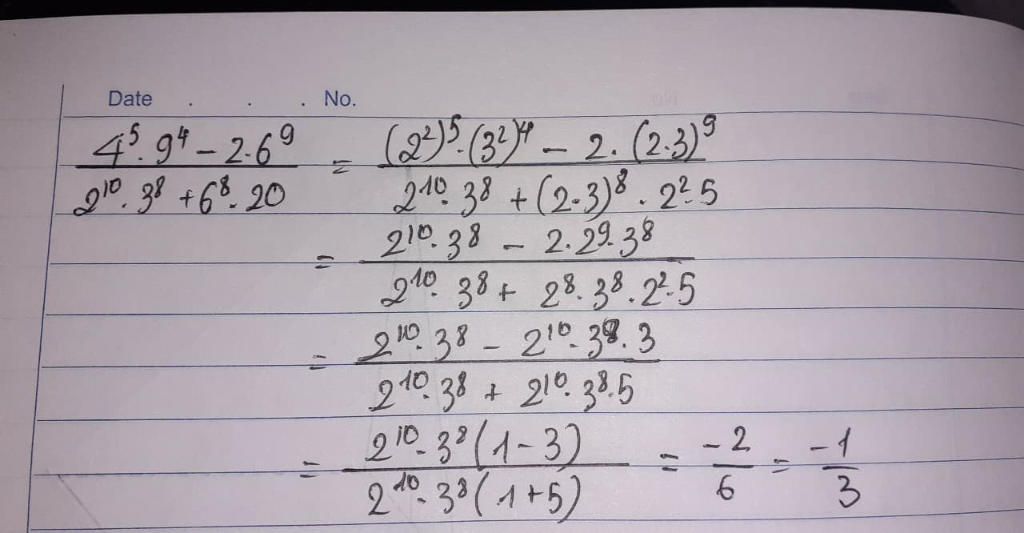 Date . . . No.
(4⁵·9⁴ − 2·6⁹)/(2¹⁰·3⁸ + 6⁸·20) = ((2²)⁵·(3²)⁴ − 2·(2·3)⁹)/(2¹⁰·3⁸ + (2·3)⁸·2²·5)
= (2¹⁰·3⁸ − 2·2⁹·3⁸)/(2¹⁰·3⁸ + 2⁸·3⁸·2²·5)
= (2¹⁰·3⁸ − 2¹⁰·3⁸·3)/(2¹⁰·3⁸ + 2¹⁰·3⁸·5)
= (2¹⁰·3⁸(1−3))/(2¹⁰·3⁸(1+5)) = −2/6 = −1/3